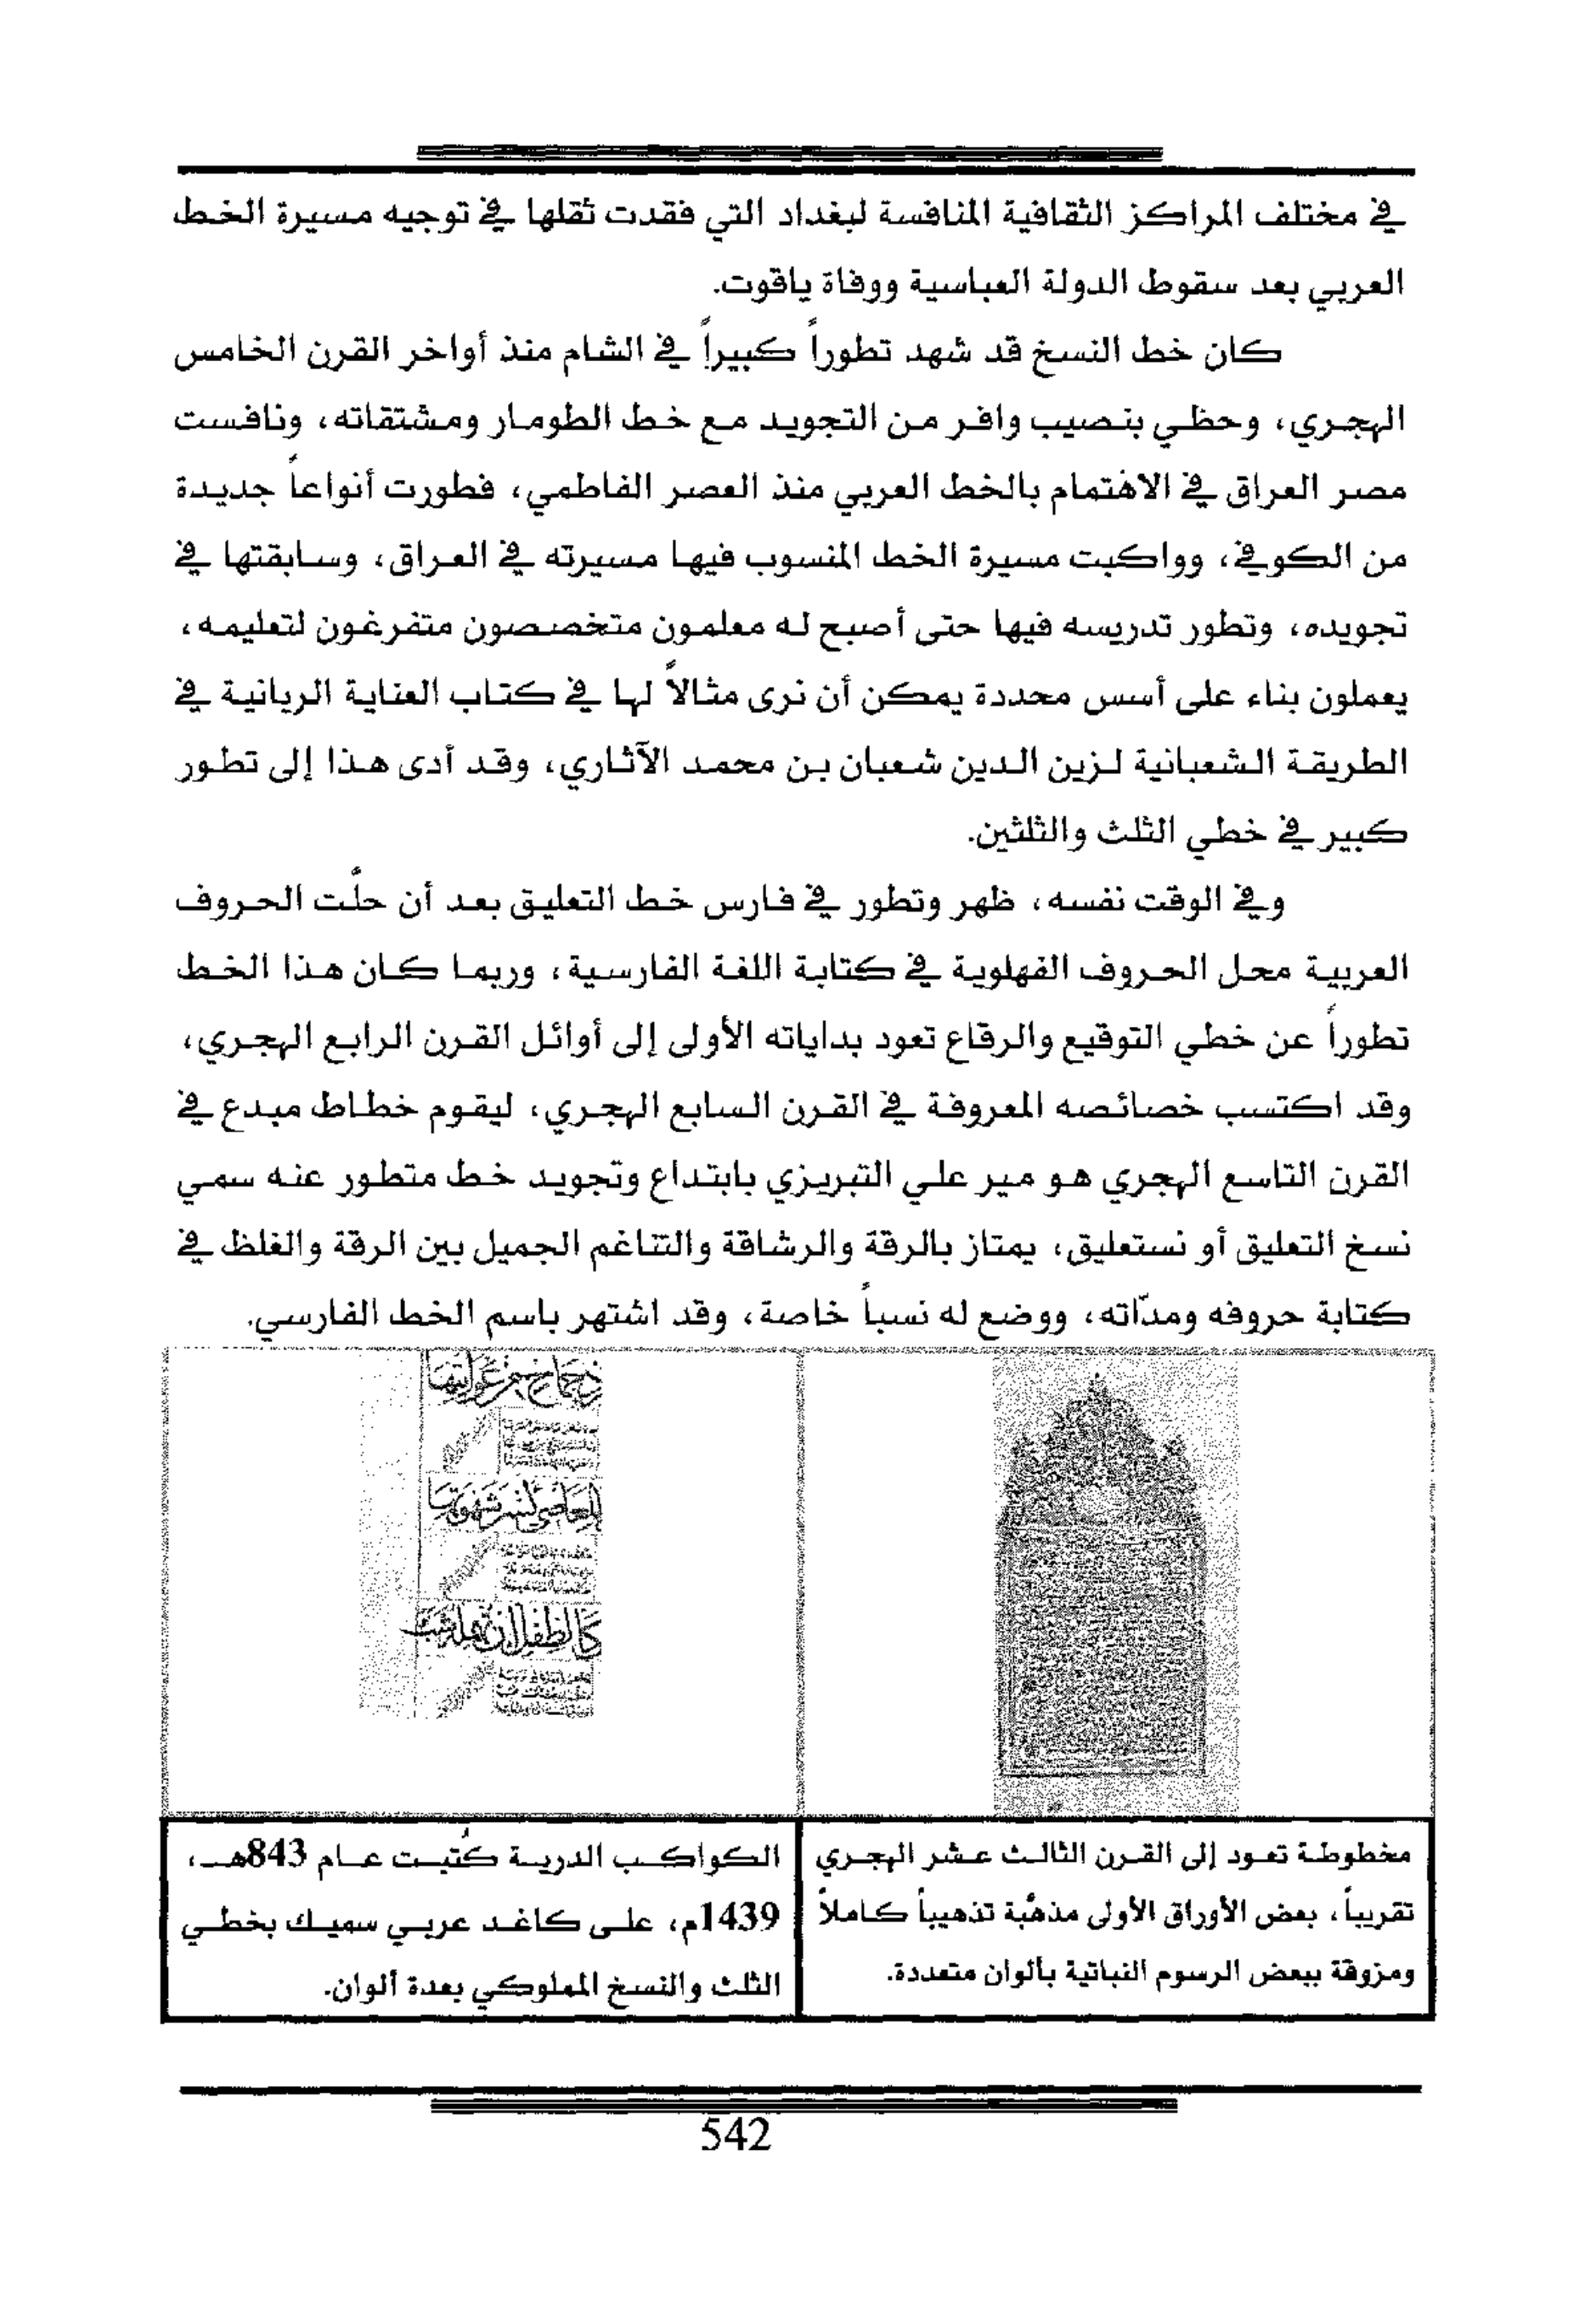 في مختلف المراكز الثقافية المنافسة لبغداد التي فقدت ثقلها في توجيه مسيرة الخط
العربي بعد سقوط الدولة العباسية ووفاة ياقوت.
كان خط النسخ قد شهد تطوراً كبيراً في الشام منذ أواخر القرن الخامس
الهجري، وحظي بنصيب وافر من التجويد مع خط الطومار ومشتقاته، ونافست
مصر العراق في الاهتمام بالخط العربي منذ العصر الفاطمي، فطورت أنواعاً جديدة
من الكوفي، وواكبت مسيرة الخط المنسوب فيها مسيرته في العراق، وسابقتها في
تجويده، وتطور تدريسه فيها حتى أصبح له معلمون متخصصون متفرغون لتعليمه،
يعملون بناء على أسس محددة يمكن أن نرى مثالاً لها في كتاب العناية الربانية في
الطريقة الشعبانية لزين الدين شعبان بن محمد الآثاري، وقد أدى هذا إلى تطور
كبير في خطي الثلث والثلثين.
وفي الوقت نفسه، ظهر وتطور في فارس خط التعليق بعد أن حلّت الحروف
العربية محل الحروف الفهلوية في كتابة اللغة الفارسية، وربما كان هذا الخط
تطوراً عن خطي التوقيع والرقاع تعود بداياته الأولى إلى أوائل القرن الرابع الهجري،
وقد اكتسب خصائصه المعروفة في القرن السابع الهجري، ليقوم خطاط مبدع في
القرن التاسع الهجري هو مير علي التبريزي بابتداع وتجويد خط متطور عنه سمي
نسخ التعليق أو نستعليق، يمتاز بالرقة والرشاقة والتناغم الجميل بين الرقة والغلظ في
كتابة حروفه ومدّاته، ووضع له نسباً خاصة، وقد اشتهر باسم الخط الفارسي.
مخطوطة تعود إلى القرن الثالث عشر الهجري
تقريباً، بعض الأوراق الأولى مذهّبة تذهيباً كاملاً
ومزوقة ببعض الرسوم النباتية بألوان متعددة.
الكواكب الدرية كُتبت عام 843هـ،
1439م، على كاغد عربي سميك بخطي
الثلث والنسخ المملوكي بعدة ألوان.
542